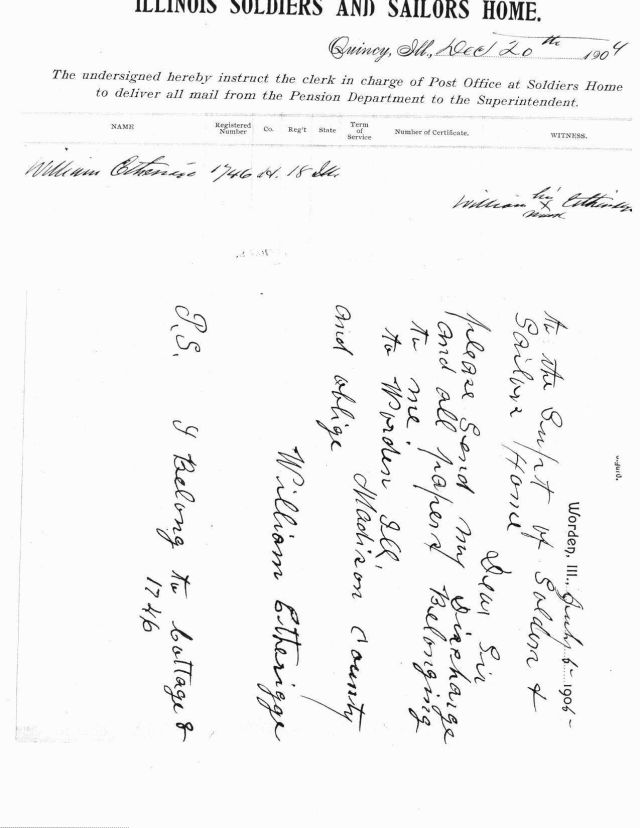 ILLINOIS SOLDIERS AND SAILORS HOME.
Quincy, Ill., Dec 20th 1904
The undersigned hereby instruct the clerk in charge of Post Office at Soldiers Home
to deliver all mail from the Pension Department to the Superintendent.
NAME Registered Number Co. Reg't State Term of Service Number of Certificate. WITNESS.
William 1746 H. 18 Ill.
his
William X
mark
Worden, Ill., 6 - 1906 -
to the Supt of Soldiers &
Sailors Home
Dear Sir
please Send my Discharge
and all papers Belonging
to me
to Worden Ill,
Madison County
and oblige
William Etherigge
P.S. I Belong to Cottage 8
1746